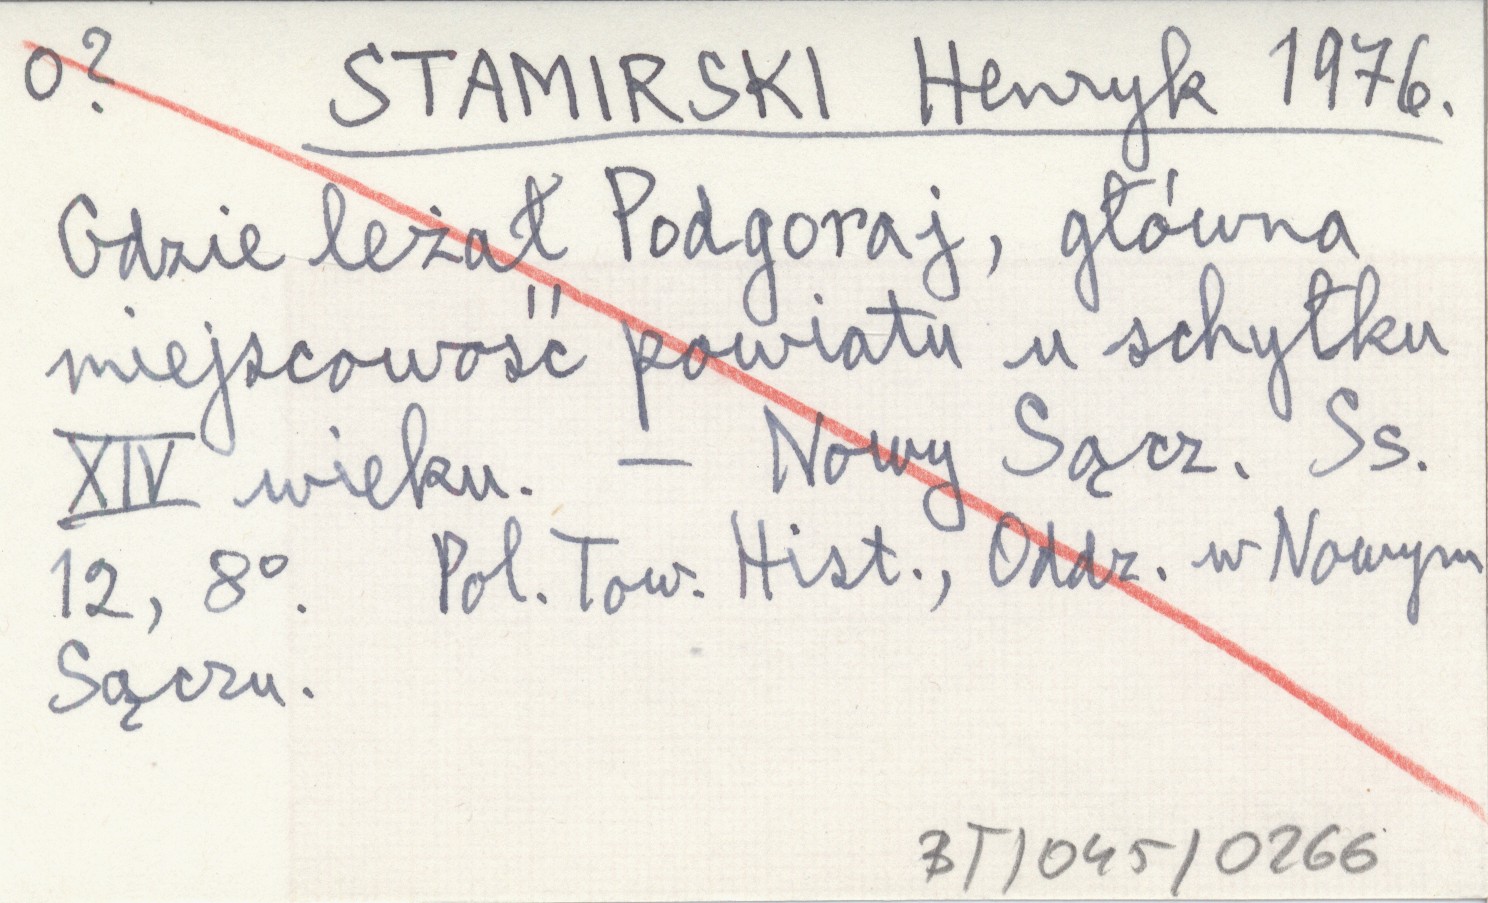 o? STAMIRSKI Henryk 1976.
Gdzie leżał Podgoraj, główna
miejscowość powiatu u schyłku
XIV wieku. — Nowy Sącz. Ss.
12, 8°. Pol. Tow. Hist., Oddz. w Nowym
Sączu.
BT/045/0266